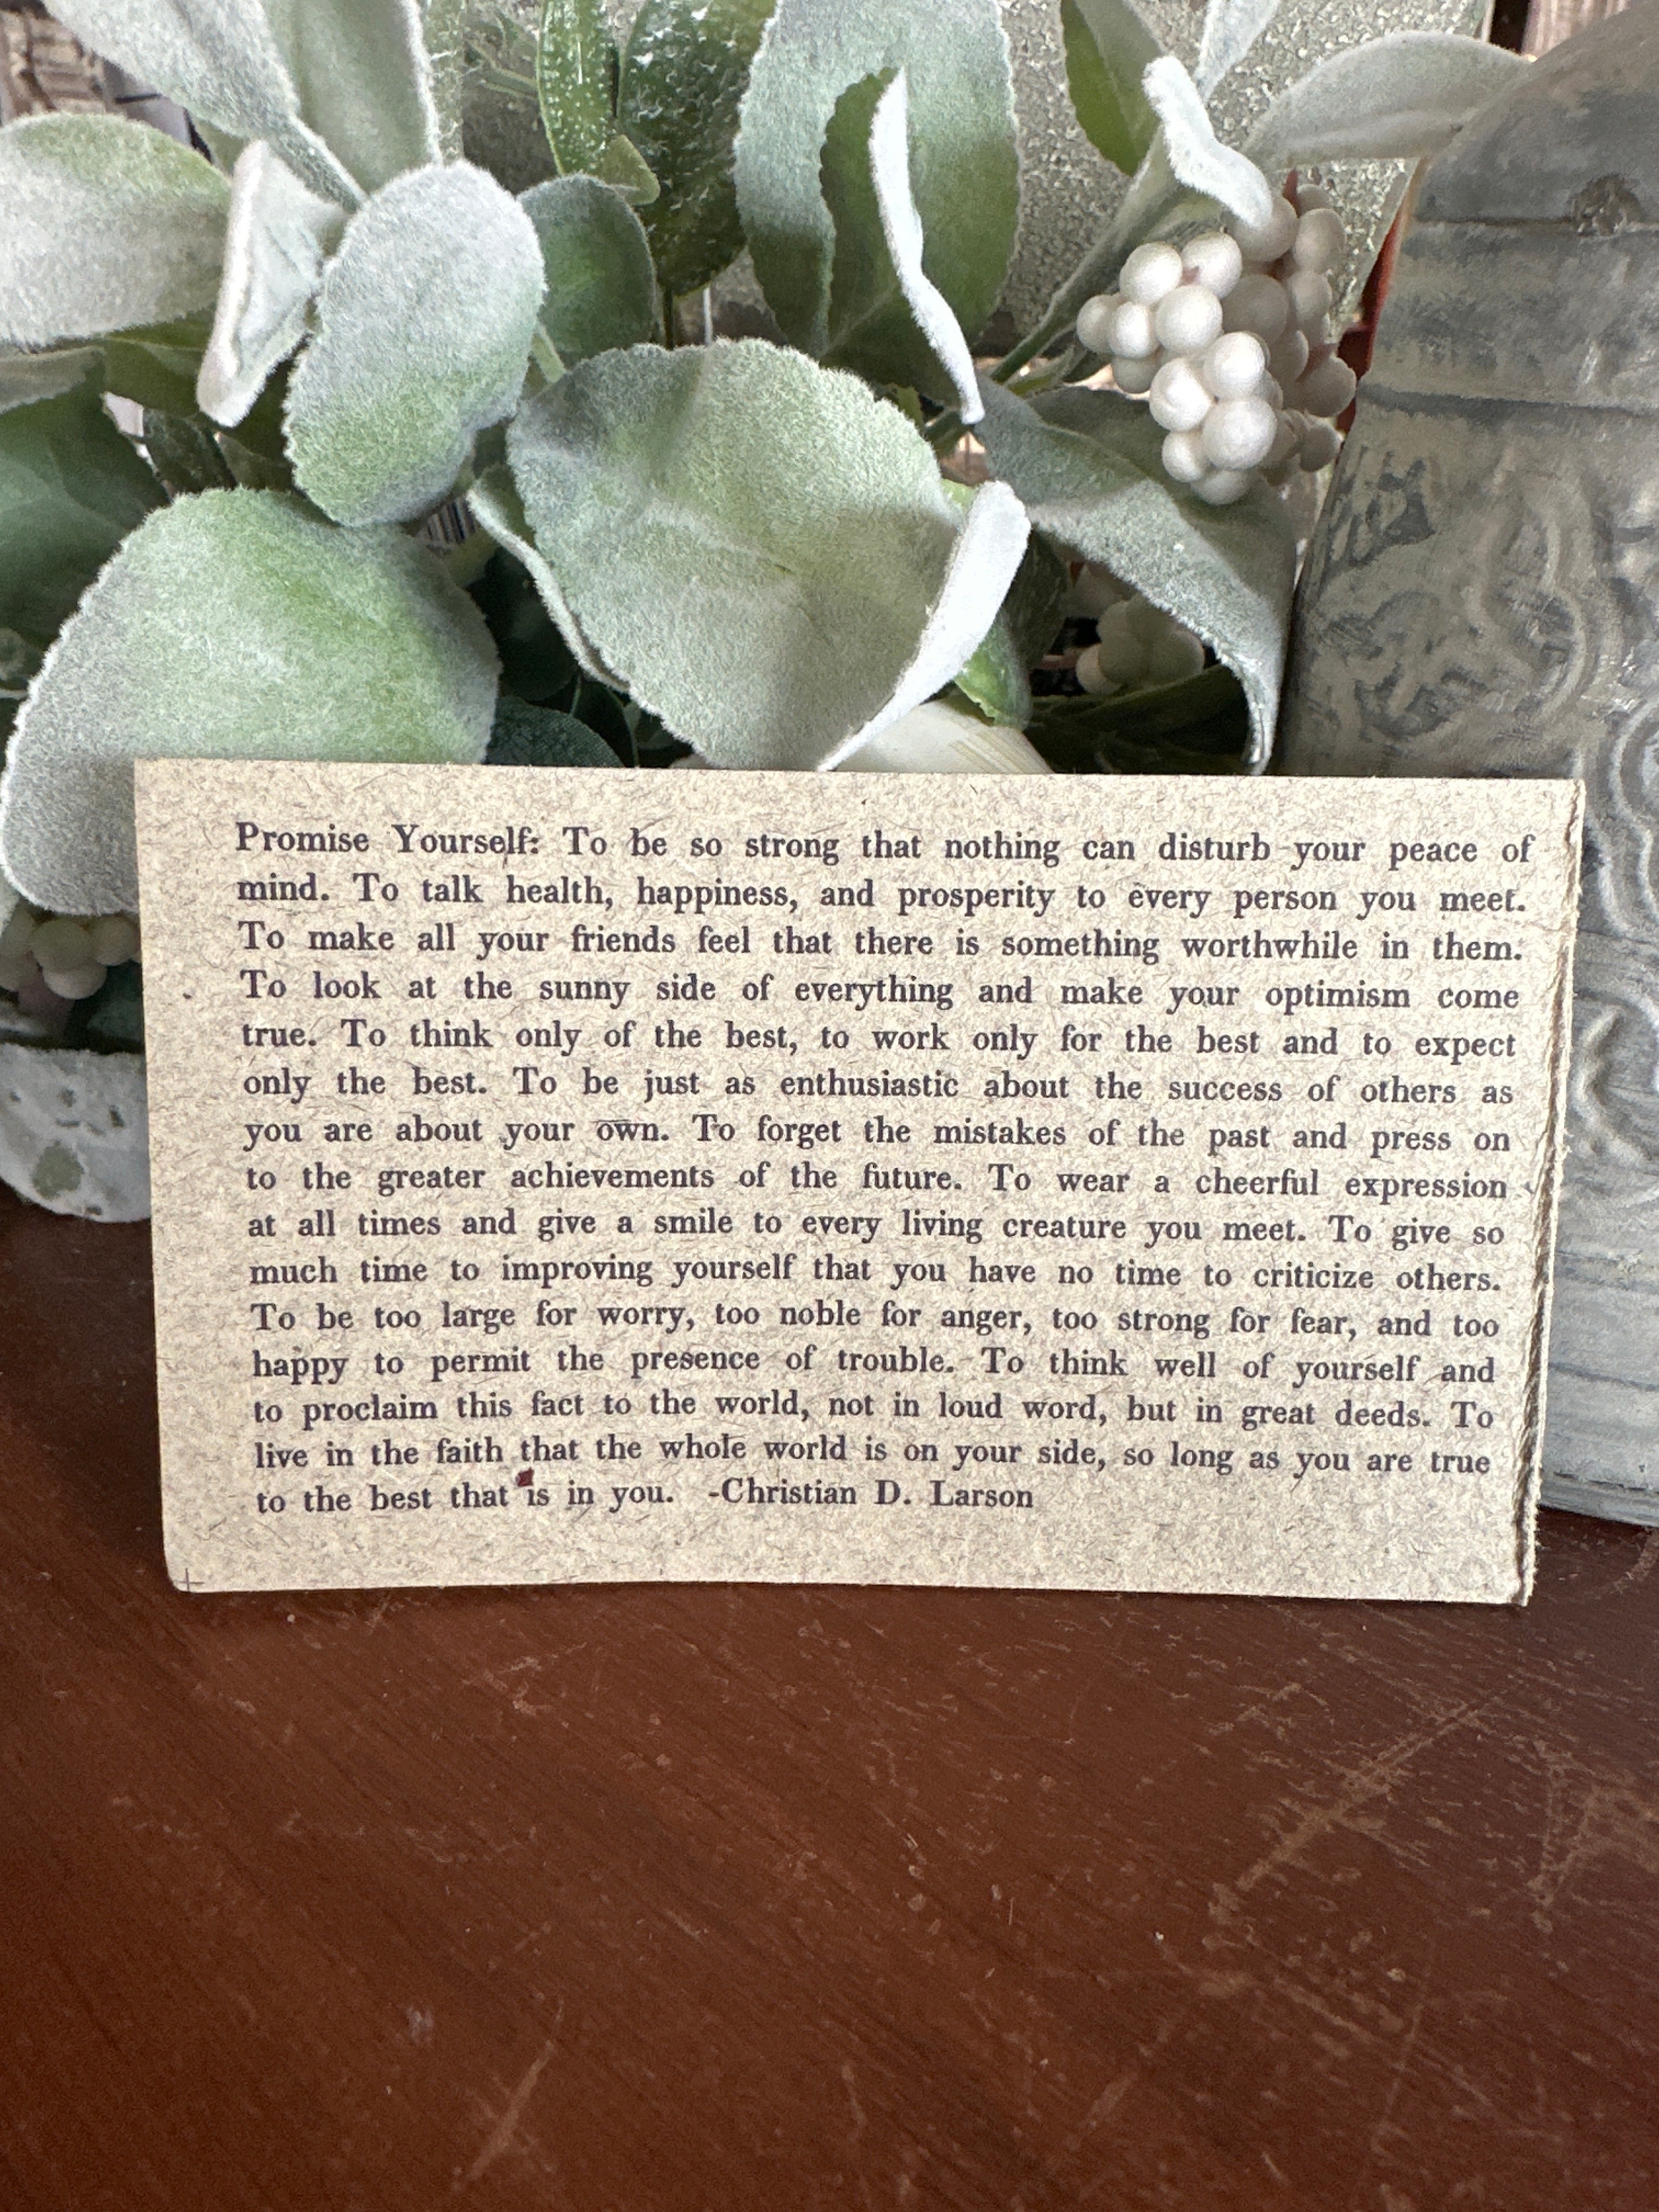 Promise Yourself: To be so strong that nothing can disturb your peace of
mind. To talk health, happiness, and prosperity to every person you meet.
To make all your friends feel that there is something worthwhile in them.
To look at the sunny side of everything and make your optimism come
true. To think only of the best, to work only for the best and to expect
only the best. To be just as enthusiastic about the success of others as
you are about your own. To forget the mistakes of the past and press on
to the greater achievements of the future. To wear a cheerful expression
at all times and give a smile to every living creature you meet. To give so
much time to improving yourself that you have no time to criticize others.
To be too large for worry, too noble for anger, too strong for fear, and too
happy to permit the presence of trouble. To think well of yourself and
to proclaim this fact to the world, not in loud word, but in great deeds. To
live in the faith that the whole world is on your side, so long as you are true
to the best that is in you. -Christian D. Larson